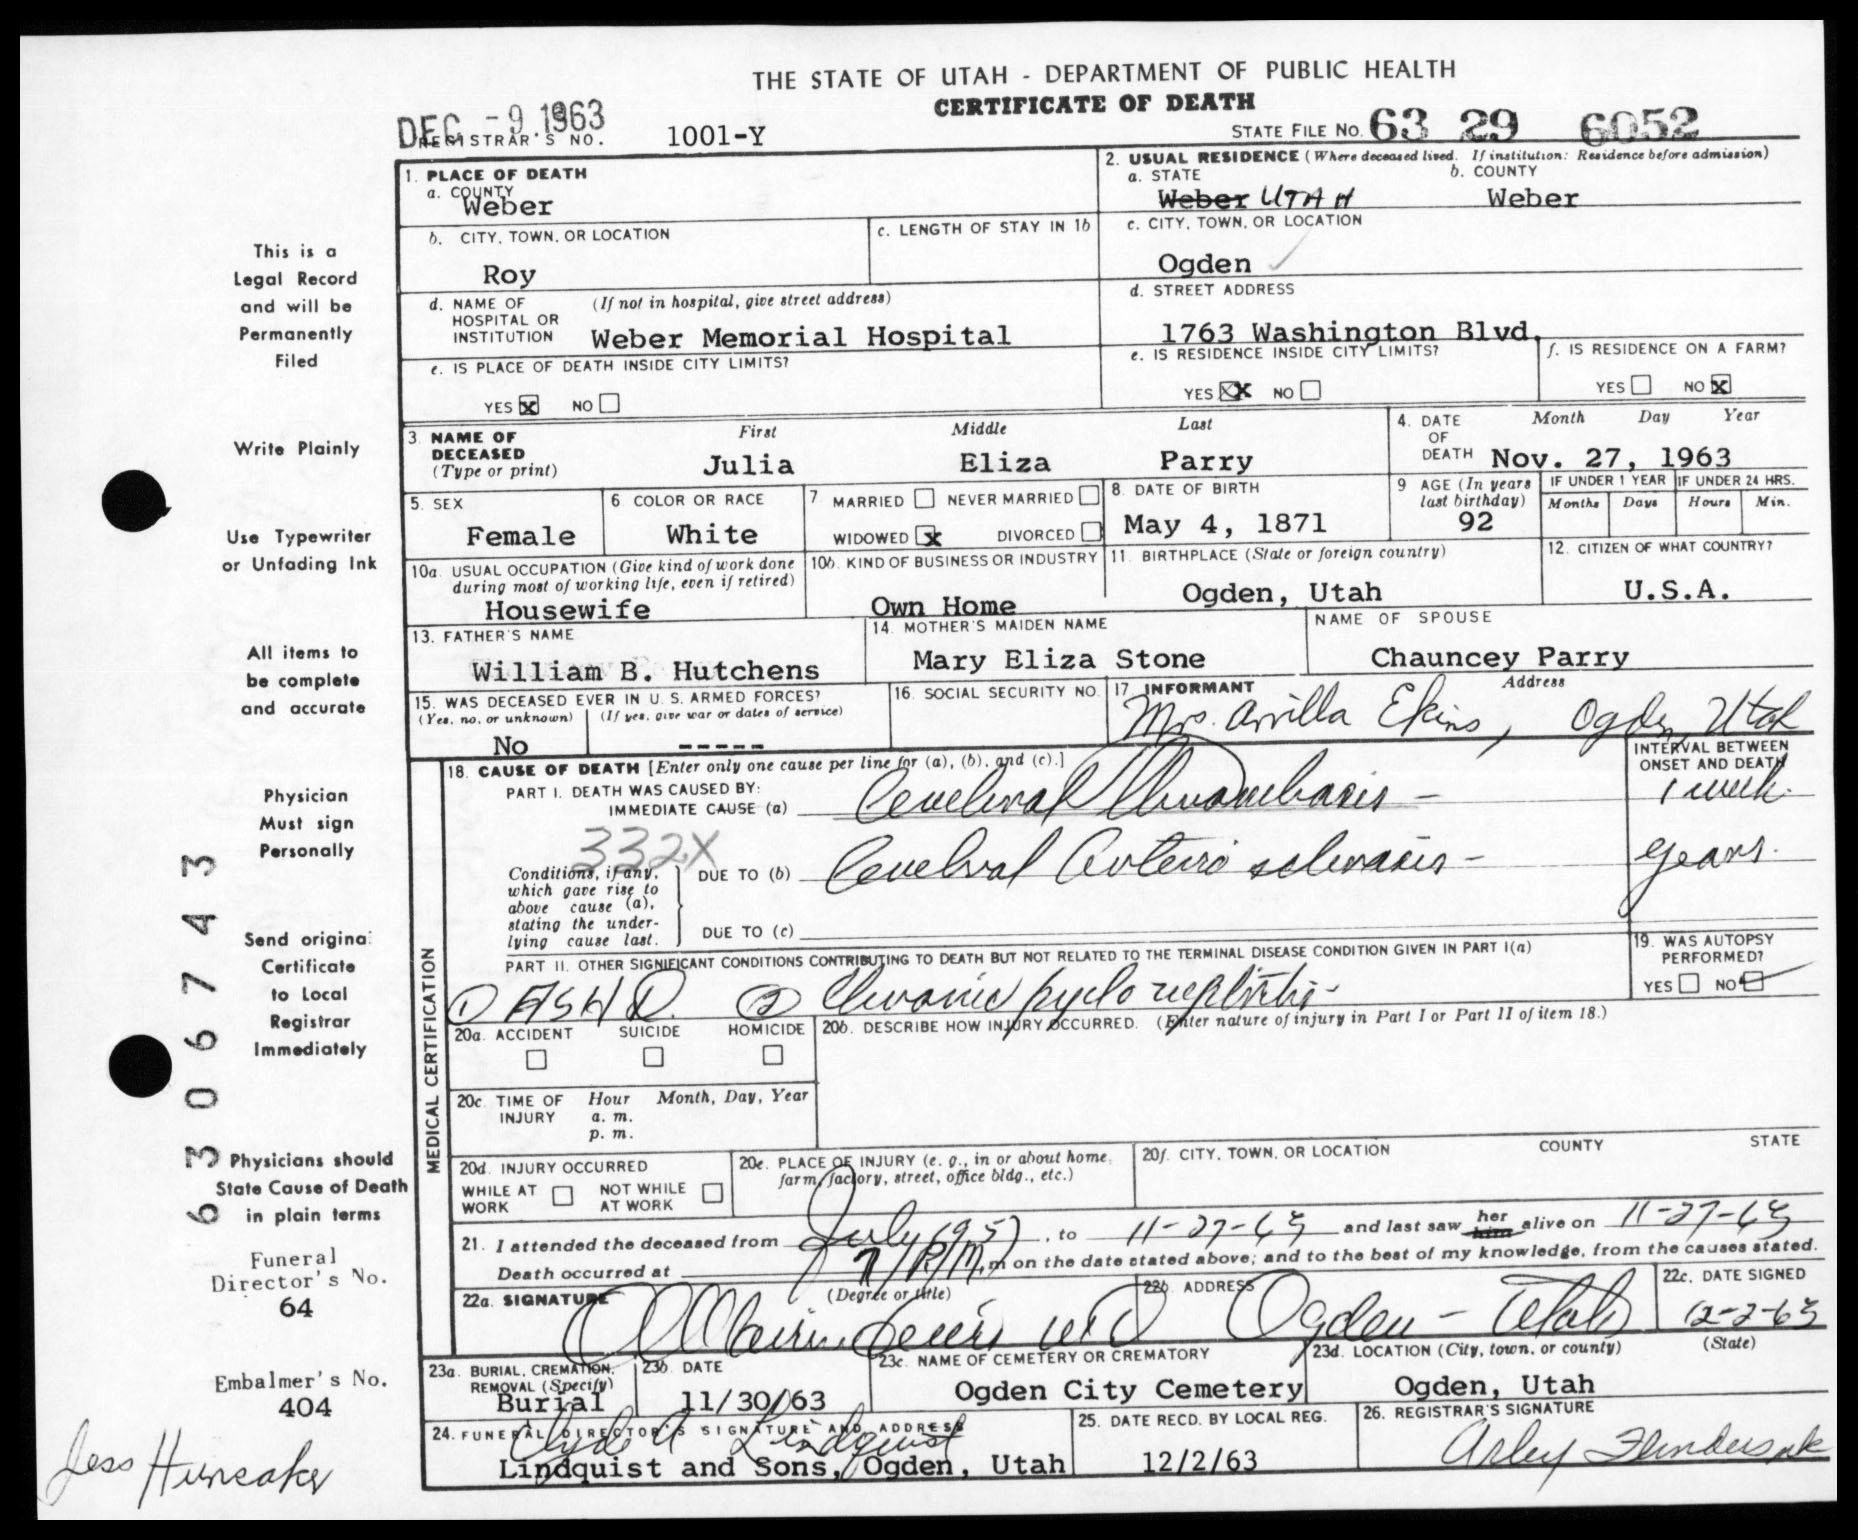 THE STATE OF UTAH - DEPARTMENT OF PUBLIC HEALTH
CERTIFICATE OF DEATH
DEC -9.1963
REGISTRAR'S NO. 1001-Y
STATE FILE NO. 63 29 6052
1. PLACE OF DEATH
a. COUNTY
Weber
2. USUAL RESIDENCE (Where deceased lived. If institution: Residence before admission)
a. STATE b. COUNTY
Weber UTAH Weber
b. CITY, TOWN, OR LOCATION
Roy
c. LENGTH OF STAY IN 1b
c. CITY, TOWN, OR LOCATION
Ogden
d. NAME OF HOSPITAL OR INSTITUTION (If not in hospital, give street address)
Weber Memorial Hospital
d. STREET ADDRESS
1763 Washington Blvd.
e. IS PLACE OF DEATH INSIDE CITY LIMITS?
YES X NO
e. IS RESIDENCE INSIDE CITY LIMITS?
YES XX NO
f. IS RESIDENCE ON A FARM?
YES NO X
3. NAME OF DECEASED (Type or print)
First Middle Last
Julia Eliza Parry
4. DATE OF DEATH Month Day Year
Nov. 27, 1963
5. SEX
Female
6 COLOR OR RACE
White
7 MARRIED NEVER MARRIED
WIDOWED X DIVORCED
8. DATE OF BIRTH
May 4, 1871
9 AGE (In years last birthday)
92
IF UNDER 1 YEAR IF UNDER 24 HRS.
Months Days Hours Min.
10a. USUAL OCCUPATION (Give kind of work done during most of working life, even if retired)
Housewife
10b. KIND OF BUSINESS OR INDUSTRY
Own Home
11. BIRTHPLACE (State or foreign country)
Ogden, Utah
12. CITIZEN OF WHAT COUNTRY?
U.S.A.
13. FATHER'S NAME
William B. Hutchens
14. MOTHER'S MAIDEN NAME
Mary Eliza Stone
NAME OF SPOUSE
Chauncey Parry
15. WAS DECEASED EVER IN U. S. ARMED FORCES?
(Yes, no, or unknown) (If yes, give war or dates of service)
No -----
16. SOCIAL SECURITY NO.
17. INFORMANT Address
Mrs. Arvilla Ekins, Ogden, Utah
MEDICAL CERTIFICATION
18. CAUSE OF DEATH [Enter only one cause per line for (a), (b), and (c).]
INTERVAL BETWEEN ONSET AND DEATH
PART I. DEATH WAS CAUSED BY:
IMMEDIATE CAUSE (a) Cerebral Thrombosis - 1 week.
332X
Conditions, if any, which gave rise to above cause (a), stating the underlying cause last.
DUE TO (b) Cerebral Arterio sclerosis - years.
DUE TO (c)
PART II. OTHER SIGNIFICANT CONDITIONS CONTRIBUTING TO DEATH BUT NOT RELATED TO THE TERMINAL DISEASE CONDITION GIVEN IN PART I(a)
① ASHD. ② Chronic pyelo nephritis -
19. WAS AUTOPSY PERFORMED?
YES NO
20a. ACCIDENT SUICIDE HOMICIDE
20b. DESCRIBE HOW INJURY OCCURRED. (Enter nature of injury in Part I or Part II of item 18.)
20c. TIME OF INJURY Hour Month, Day, Year
a. m.
p. m.
20d. INJURY OCCURRED
WHILE AT WORK NOT WHILE AT WORK
20e. PLACE OF INJURY (e. g., in or about home, farm, factory, street, office bldg., etc.)
20f. CITY, TOWN, OR LOCATION COUNTY STATE
21. I attended the deceased from July 1957, to 11-27-63 and last saw her him alive on 11-27-63
Death occurred at 7 P.M. m on the date stated above; and to the best of my knowledge, from the causes stated.
22a. SIGNATURE (Degree or title)
22b. ADDRESS
Ogden - Utah
22c. DATE SIGNED
12-2-63
23a. BURIAL, CREMATION, REMOVAL (Specify)
Burial
23b. DATE
11/30/63
23c. NAME OF CEMETERY OR CREMATORY
Ogden City Cemetery
23d. LOCATION (City, town, or county) (State)
Ogden, Utah
24. FUNERAL DIRECTOR'S SIGNATURE AND ADDRESS
Clyde A Lindquist
Lindquist and Sons, Ogden, Utah
25. DATE RECD. BY LOCAL REG.
12/2/63
26. REGISTRAR'S SIGNATURE
Arley
This is a
Legal Record
and will be
Permanently
Filed
Write Plainly
Use Typewriter
or Unfading Ink
All items to
be complete
and accurate
Physician
Must sign
Personally
Send original
Certificate
to Local
Registrar
Immediately
Physicians should
State Cause of Death
in plain terms
Funeral
Director's No.
64
Embalmer's No.
404
Jess Hunsaker
6306743